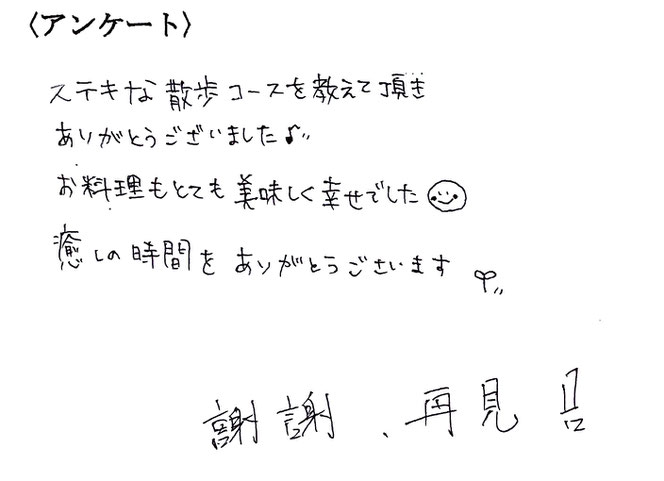 〈アンケート〉
ステキな散歩コースを教えて頂き
ありがとうございました♪〃
お料理もとても美味しく幸せでした
癒しの時間をありがとうございます
謝謝、再見!!